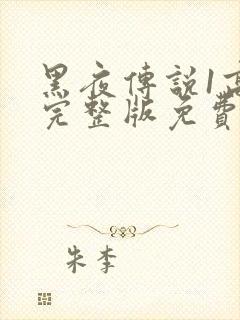 黑夜傳說1高
完整版免費
朱李